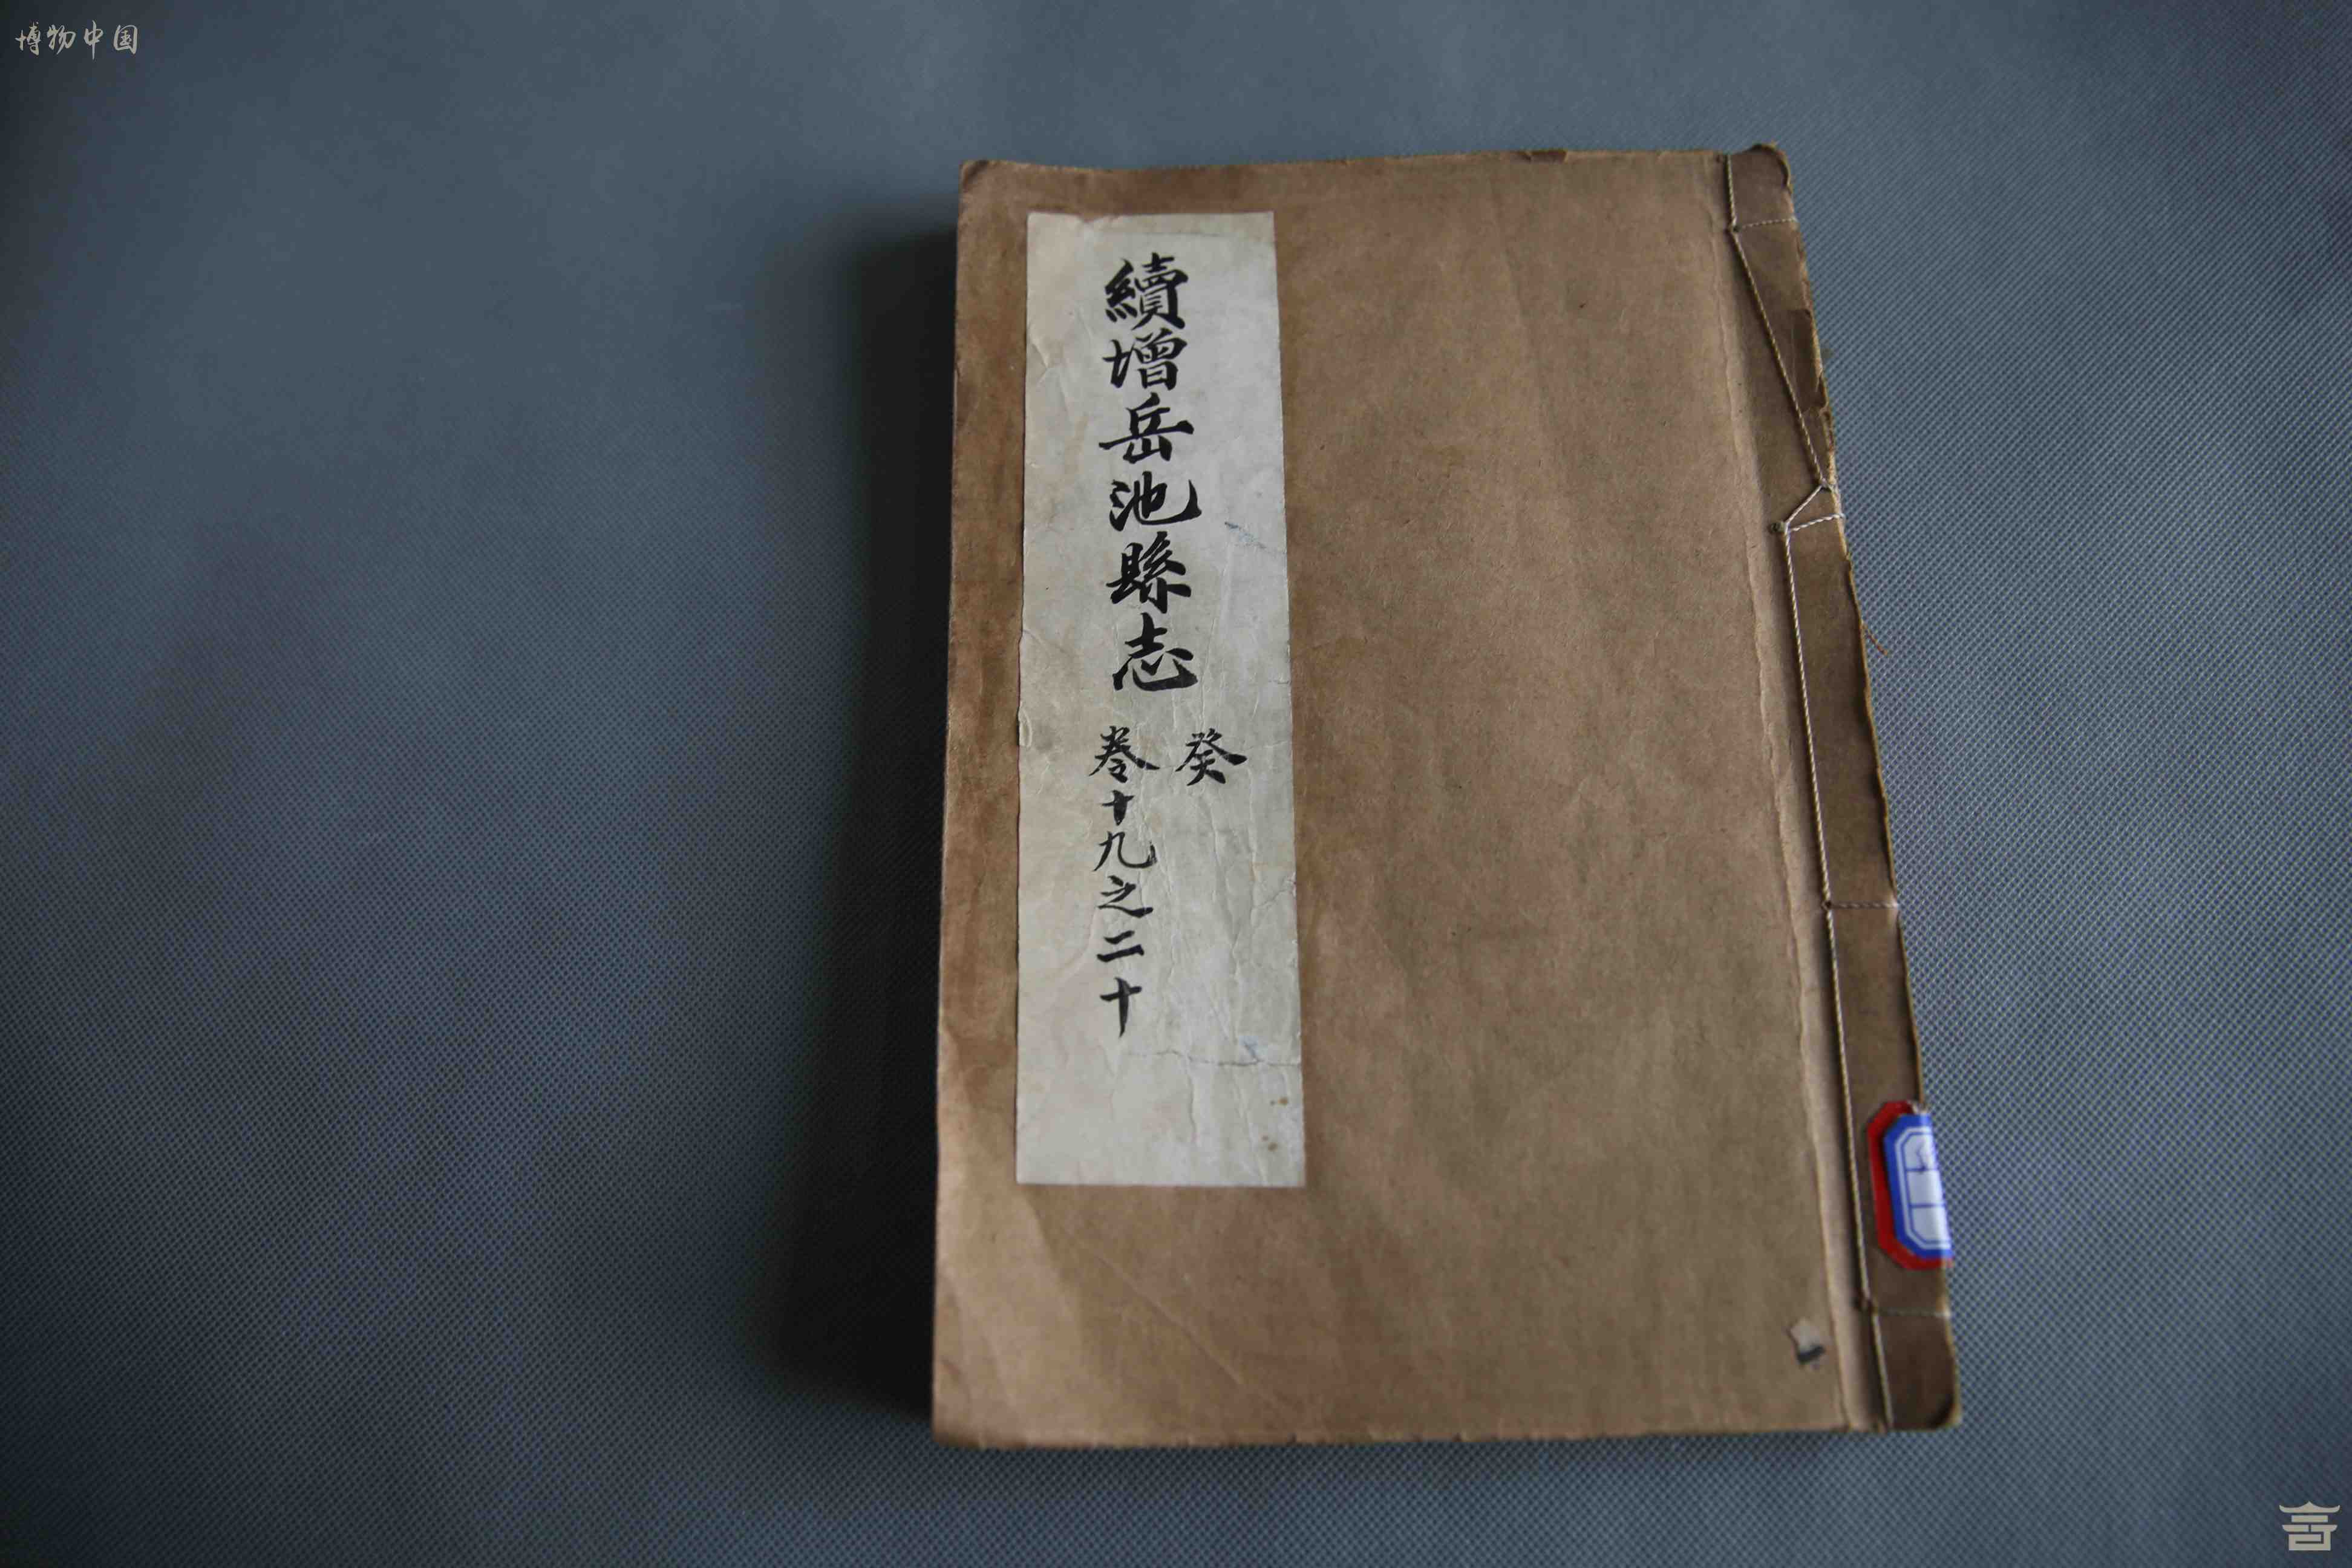 博物中国
續增岳池縣志
癸
卷十九之二十